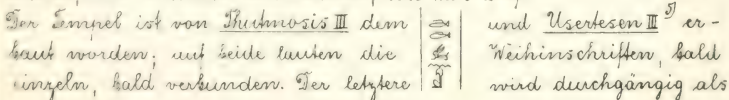 Der Tempel ist von Thutmosis III dem und Usertesen III 5) er-
baut worden; auf beide lauten die Weihinschriften, bald
einzeln, bald verbunden. Der letztere wird durchgängig als